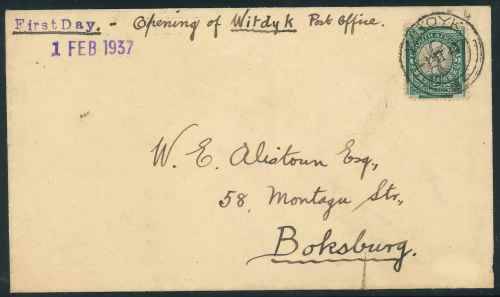 First Day. - Opening of Witdyk Post Office.
1 FEB 1937
W. E. Alistoun Esq.,
58, Montagu Str.,
Boksburg.